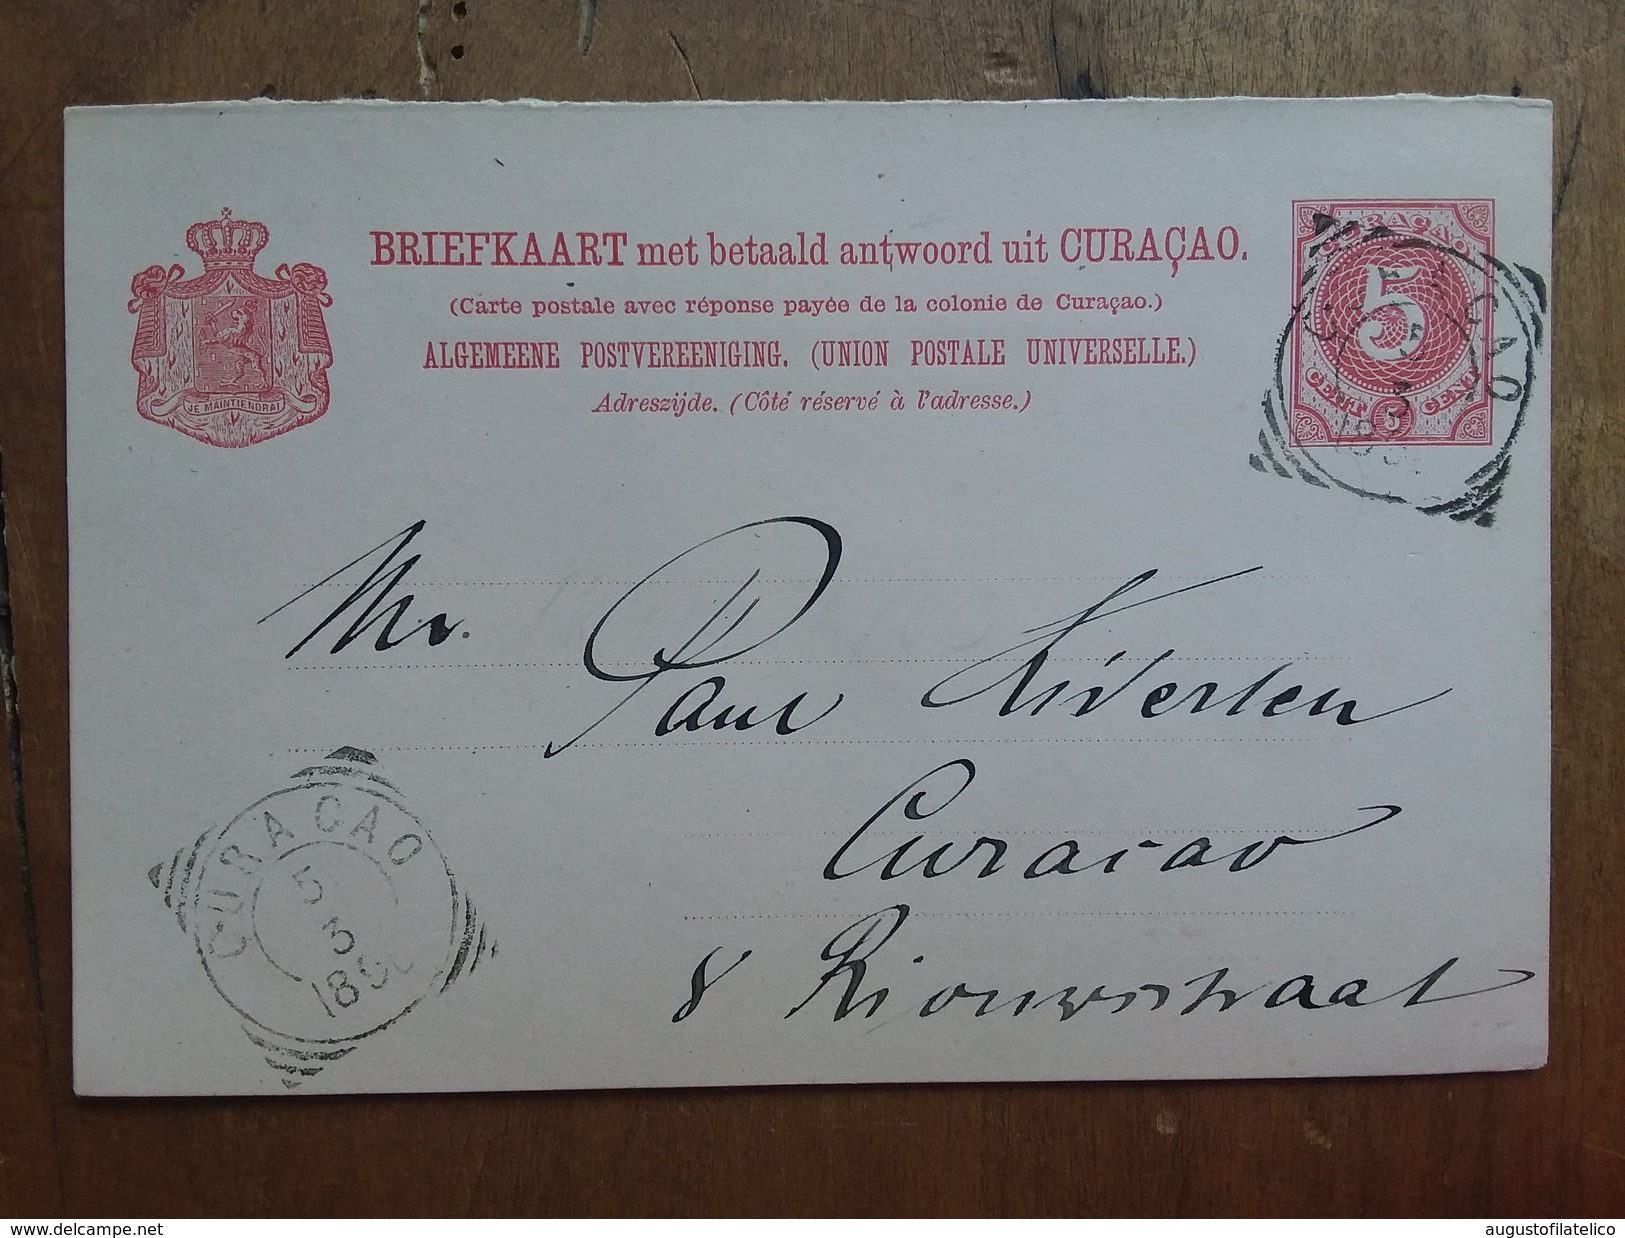 BRIEFKAART met betaald antwoord uit CURAÇAO.
(Carte postale avec réponse payée de la colonie de Curaçao.)
ALGEMEENE POSTVEREENIGING. (UNION POSTALE UNIVERSELLE.)
Adreszijde. (Côté réservé à l'adresse.)
JE MAINTIENDRAI
CURAÇAO
5
CENT 5 CENT
CURACAO
5
3
Mr. Paul
Curacao
8 Riouwstraat
CURACAO
5
3
augustofilatelico
delcampe.net